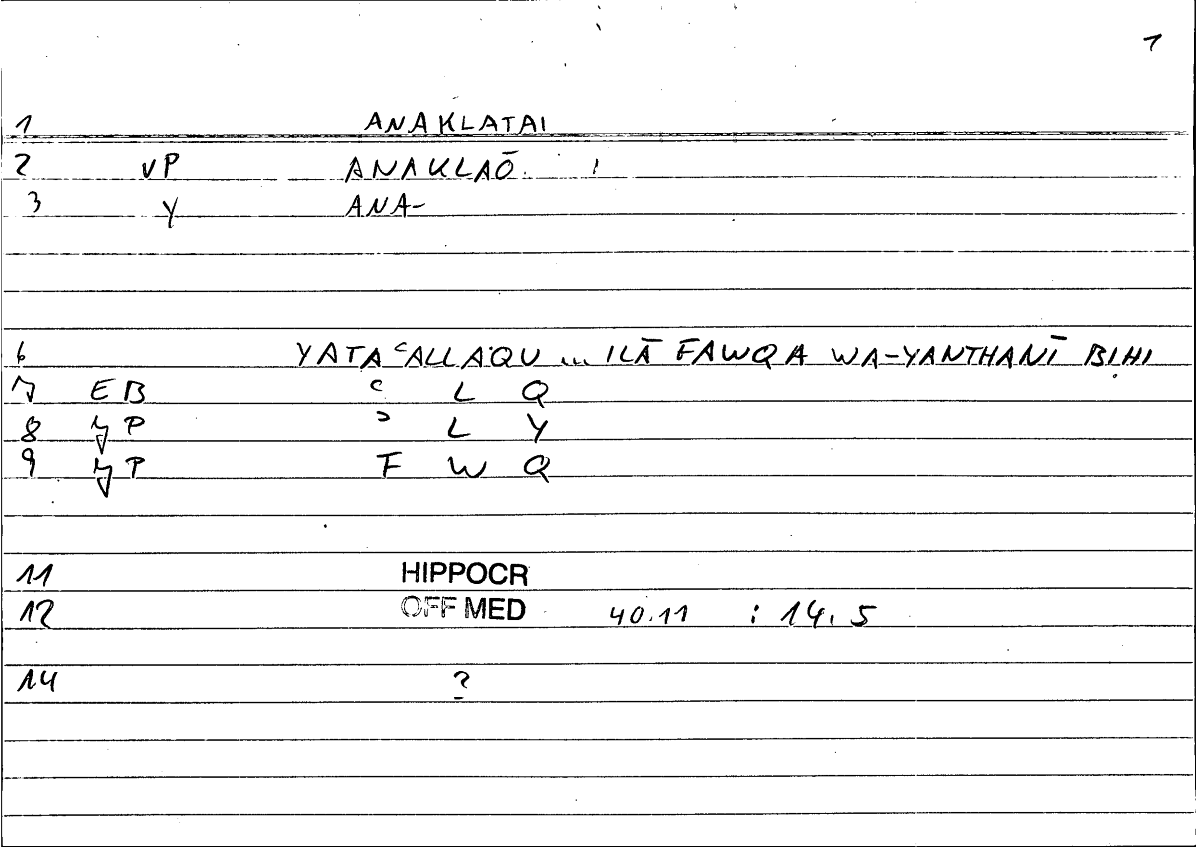 1
1 ANAKLATAI
2 VP ANAKLAŌ
3 Y ANA-
6 YATAʿALLAQU ... ILĀ FAWQA WA-YANTHANĪ BIHI
7 EB ʿ L Q
8 P ʾ L Y
9 P F W Q
11 HIPPOCR
12 OFF MED 40.11 : 14.5
14 ?